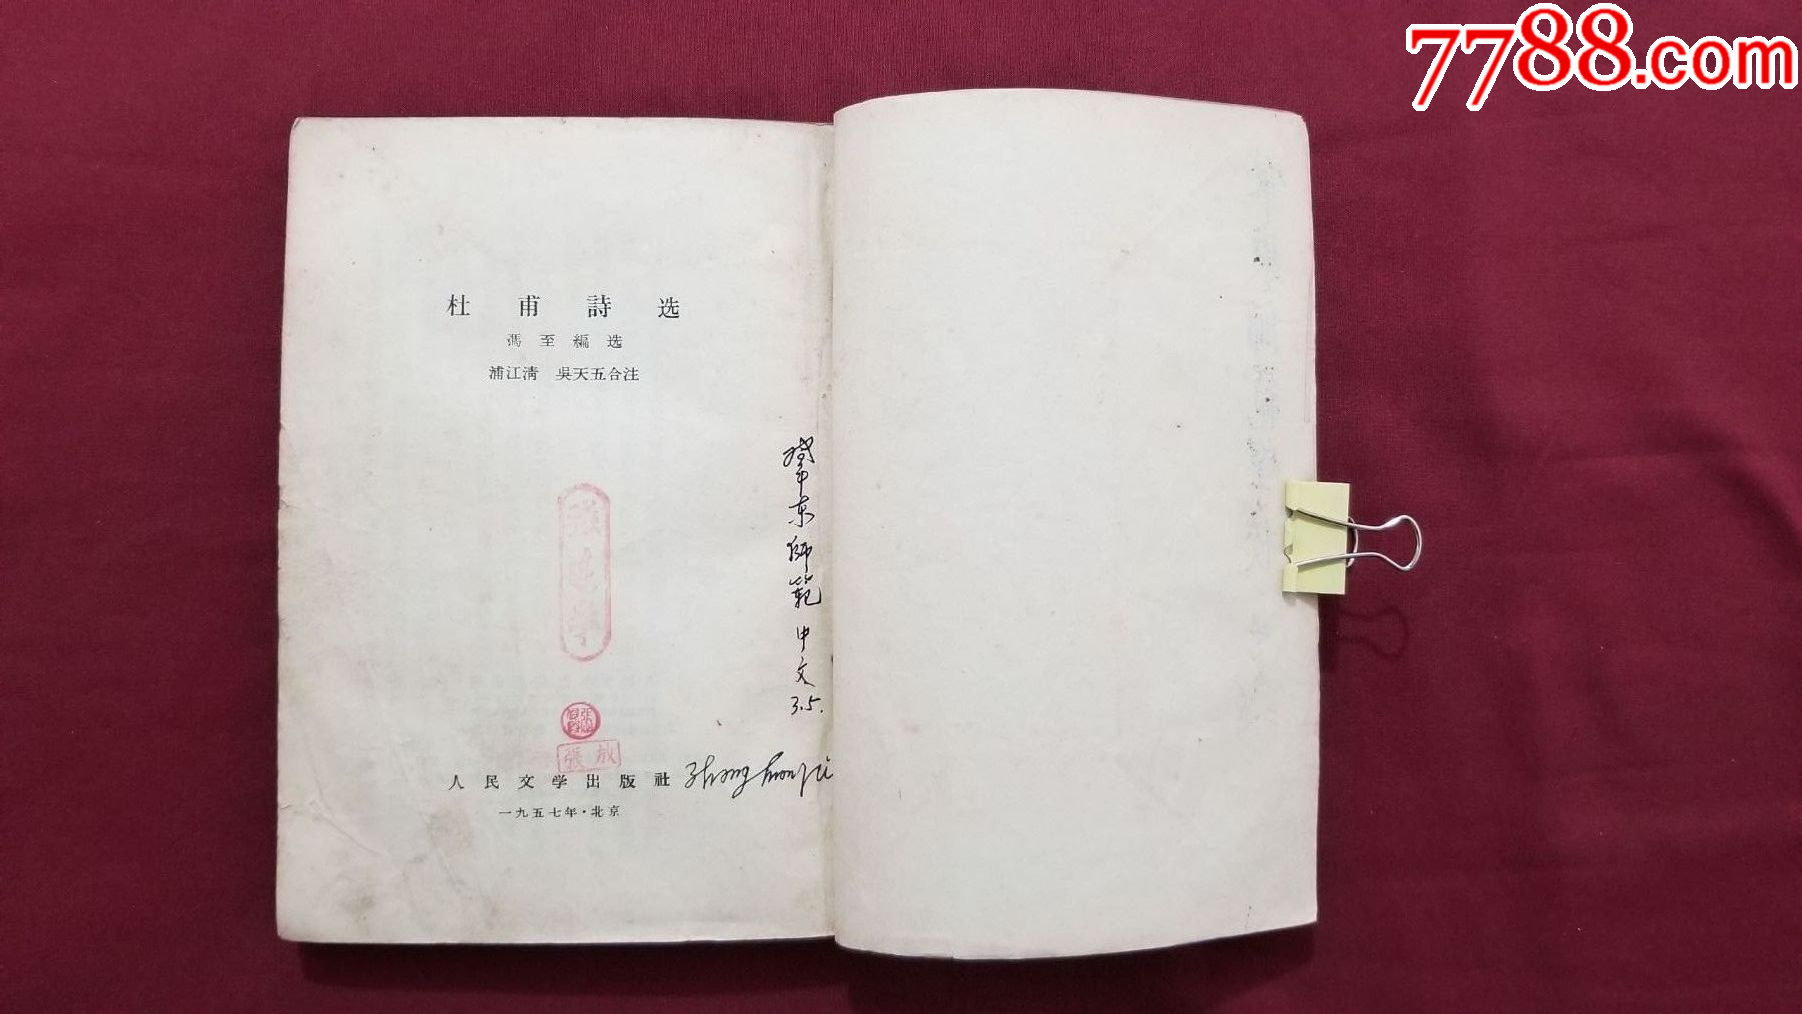 7788.com
杜甫詩选
馮至編选
浦江清 吳天五合注
东师範中文3.5.
張成
人民文学出版社
一九五七年·北京